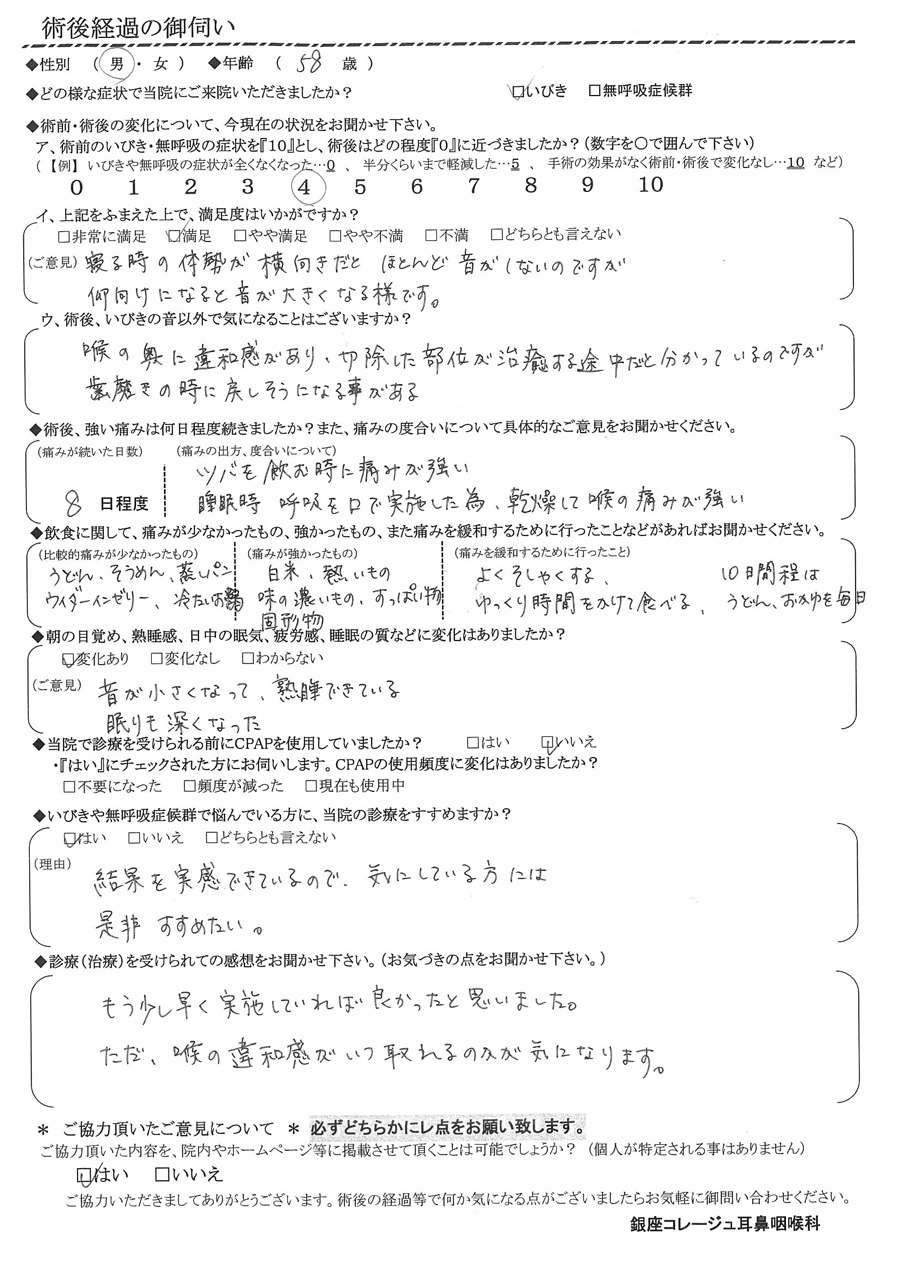 術後経過の御伺い
◆性別 ( 男 ・ 女 ) ◆年齢 ( 58 歳 )
◆どの様な症状で当院にご来院いただきましたか? ☑いびき □無呼吸症候群
◆術前・術後の変化について、今現在の状況をお聞かせ下さい。
ア、術前のいびき・無呼吸の症状を『10』とし、術後はどの程度『0』に近づきましたか?(数字を○で囲んで下さい)
(【例】いびきや無呼吸の症状が全くなくなった…0 、 半分くらいまで軽減した…5 、 手術の効果がなく術前・術後で変化なし…10 など)
0 1 2 3 4 5 6 7 8 9 10
イ、上記をふまえた上で、満足度はいかがですか?
□非常に満足 ☑満足 □やや満足 □やや不満 □不満 □どちらとも言えない
(ご意見) 寝る時の体勢が横向きだと ほとんど音がしないのですが
仰向けになると音が大きくなる様です。
ウ、術後、いびきの音以外で気になることはございますか?
喉の奥に違和感があり、切除した部位が治癒する途中だと分かっているのですが
歯磨きの時に戻しそうになる事がある
◆術後、強い痛みは何日程度続きましたか?また、痛みの度合いについて具体的なご意見をお聞かせください。
(痛みが続いた日数) (痛みの出方、度合いについて)
ツバを飲む時に痛みが強い
8 日程度 睡眠時 呼吸を口で実施した為、乾燥して喉の痛みが強い
◆飲食に関して、痛みが少なかったもの、強かったもの、また痛みを緩和するために行ったことなどがあればお聞かせください。
(比較的痛みが少なかったもの) (痛みが強かったもの) (痛みを緩和するために行ったこと)
うどん、そうめん、蒸しパン 白米、熱いもの よくそしゃくする、 10日間程は
ウィダーインゼリー、冷たいお粥 味の濃いもの、すっぱい物 ゆっくり時間をかけて食べる、 うどん、おかゆを毎日
固形物
◆朝の目覚め、熟睡感、日中の眠気、疲労感、睡眠の質などに変化はありましたか?
☑変化あり □変化なし □わからない
(ご意見) 音が小さくなって、熟睡できている
眠りも深くなった
◆当院で診療を受けられる前にCPAPを使用していましたか? □はい ☑いいえ
・『はい』にチェックされた方にお伺いします。CPAPの使用頻度に変化はありましたか?
□不要になった □頻度が減った □現在も使用中
◆いびきや無呼吸症候群で悩んでいる方に、当院の診療をすすめますか?
☑はい □いいえ □どちらとも言えない
(理由) 結果を実感できているので、気にしている方には
是非 すすめたい。
◆診療(治療)を受けられての感想をお聞かせ下さい。(お気づきの点をお聞かせ下さい。)
もう少し早く実施していれば良かったと思いました。
ただ、喉の違和感がいつ取れるのかが気になります。
＊ ご協力頂いたご意見について ＊ 必ずどちらかにレ点をお願い致します。
ご協力頂いた内容を、院内やホームページ等に掲載させて頂くことは可能でしょうか? (個人が特定される事はありません)
☑はい □いいえ
ご協力いただきましてありがとうございます。術後の経過等で何か気になる点がございましたらお気軽に御問い合わせください。
銀座コレージュ耳鼻咽喉科